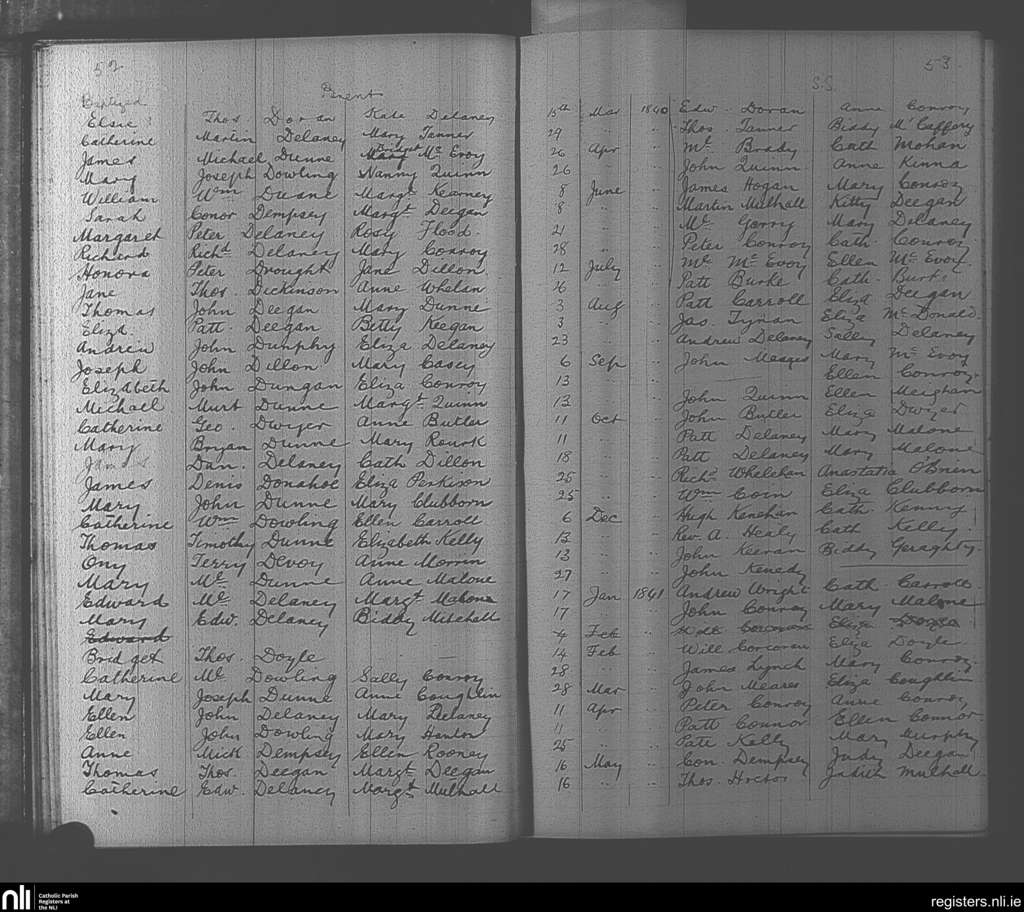 52
53
Baptized Parent S.S.
Elsie Thos. Doran Kate Delaney 15th Mar 1840 Edw. Doran Anne Conroy
Catherine Martin Delaney Mary Tanner 29 " " Thos. Tanner Biddy McCaffory
James Michael Dunne Bridget Mary McEvoy 26 Apr " Ml. Brady Cath Mohan
Mary Joseph Dowling Nanny Quinn 26 " John Quinn Anne Kinna
William Wm Duane Margt. Kearney 8 June " James Hogan Mary Conroy
Sarah Conor Dempsey Margt. Deegan 8 " " Martin Mulhall Kitty Deegan
Margaret Peter Delaney Rosy Flood 21 " " Ml. Garry Mary Delaney
Richard Richd. Delaney Mary Conroy 28 " " Peter Conroy Cath. Conroy
Honora Peter Drought Jane Dillon 12 July " Ml. McEvoy Ellen McEvoy
Jane Thos. Dickinson Anne Whelan " " Patt Burke Cath. Burke
Thomas John Deegan Mary Dunne 3 Aug " Patt Carroll Eliza Deegan
Eliza. Patt. Deegan Betty Keegan 3 " " Jas. Tynan Eliza McDonald
Andrew John Dunphy Eliza Delaney 23 " " Andrew Delaney Salley Delaney
Joseph John Dillon Mary Casey 6 Sep " John Meages Mary McEvoy
Elizabeth John Dungan Eliza Conroy 13 " " — Ellen Conroy
Michael Murt Dunne Margt. Quinn 13 " " John Quinn Ellen Meighan
Catherine Geo. Dwyer Anne Butler 11 Oct " John Butler Eliza Dwyer
Mary Bryan Dunne Mary Rourk 11 " " Patt Delaney Mary Malone
James Dan. Delaney Cath Dillon 18 " " Patt Delaney Mary Malone
James Denis Donahoe Eliza Perkison 25 " " Richd. Whelehan Anastatia O'Brien
Mary John Dunne Mary Clubborn 25 " " Wm Coin Eliza Clubborn
Catherine Wm Dowling Ellen Carroll 6 Dec " Hugh Kenehan Cath. Kenny
Thomas Timothy Dunne Elizabeth Kelly 13 " " Rev. A. Healy Cath Kelly
Ony Terry Devoy Anne Morrin 13 " " John Keenan Biddy Geraghty.
Mary Ml. Dunne Anne Malone 27 " " John Kenedy —
Edward Ml. Delaney Margt. Malone 17 Jan 1841 Andrew Wright Cath Carroll
Mary Edw. Delaney Biddy Mitchall 17 " " John Conroy Mary Malone
Edward 4 Feb " Will Corcoran Eliza Doyle
Bridget Thos. Doyle — 14 Feb " Will Corcoran Eliza Doyle
Catherine Ml. Dowling Sally Conroy 28 " " James Lynch Mary Conroy
Mary Joseph Dunne Anne Coughlin 28 Mar " John Meares Eliza Coughlin
Ellen John Delaney Mary Delaney 11 Apr " Peter Conroy Anne Conroy
Ellen John Dowling Mary Hanlon 11 " " Patt Connor Ellen Connor
Anne Mick Dempsey Ellen Rooney 25 " " Patt Kelly Mary Murphy
Thomas Thos. Deegan Margt. Deegan 16 May " Con. Dempsey Judy Deegan
Catherine Edw. Delaney Margt. Mulhall 16 " " Thos. Hoctor Judith Mulhall
nli Catholic Parish
Registers at
the NLI
registers.nli.ie